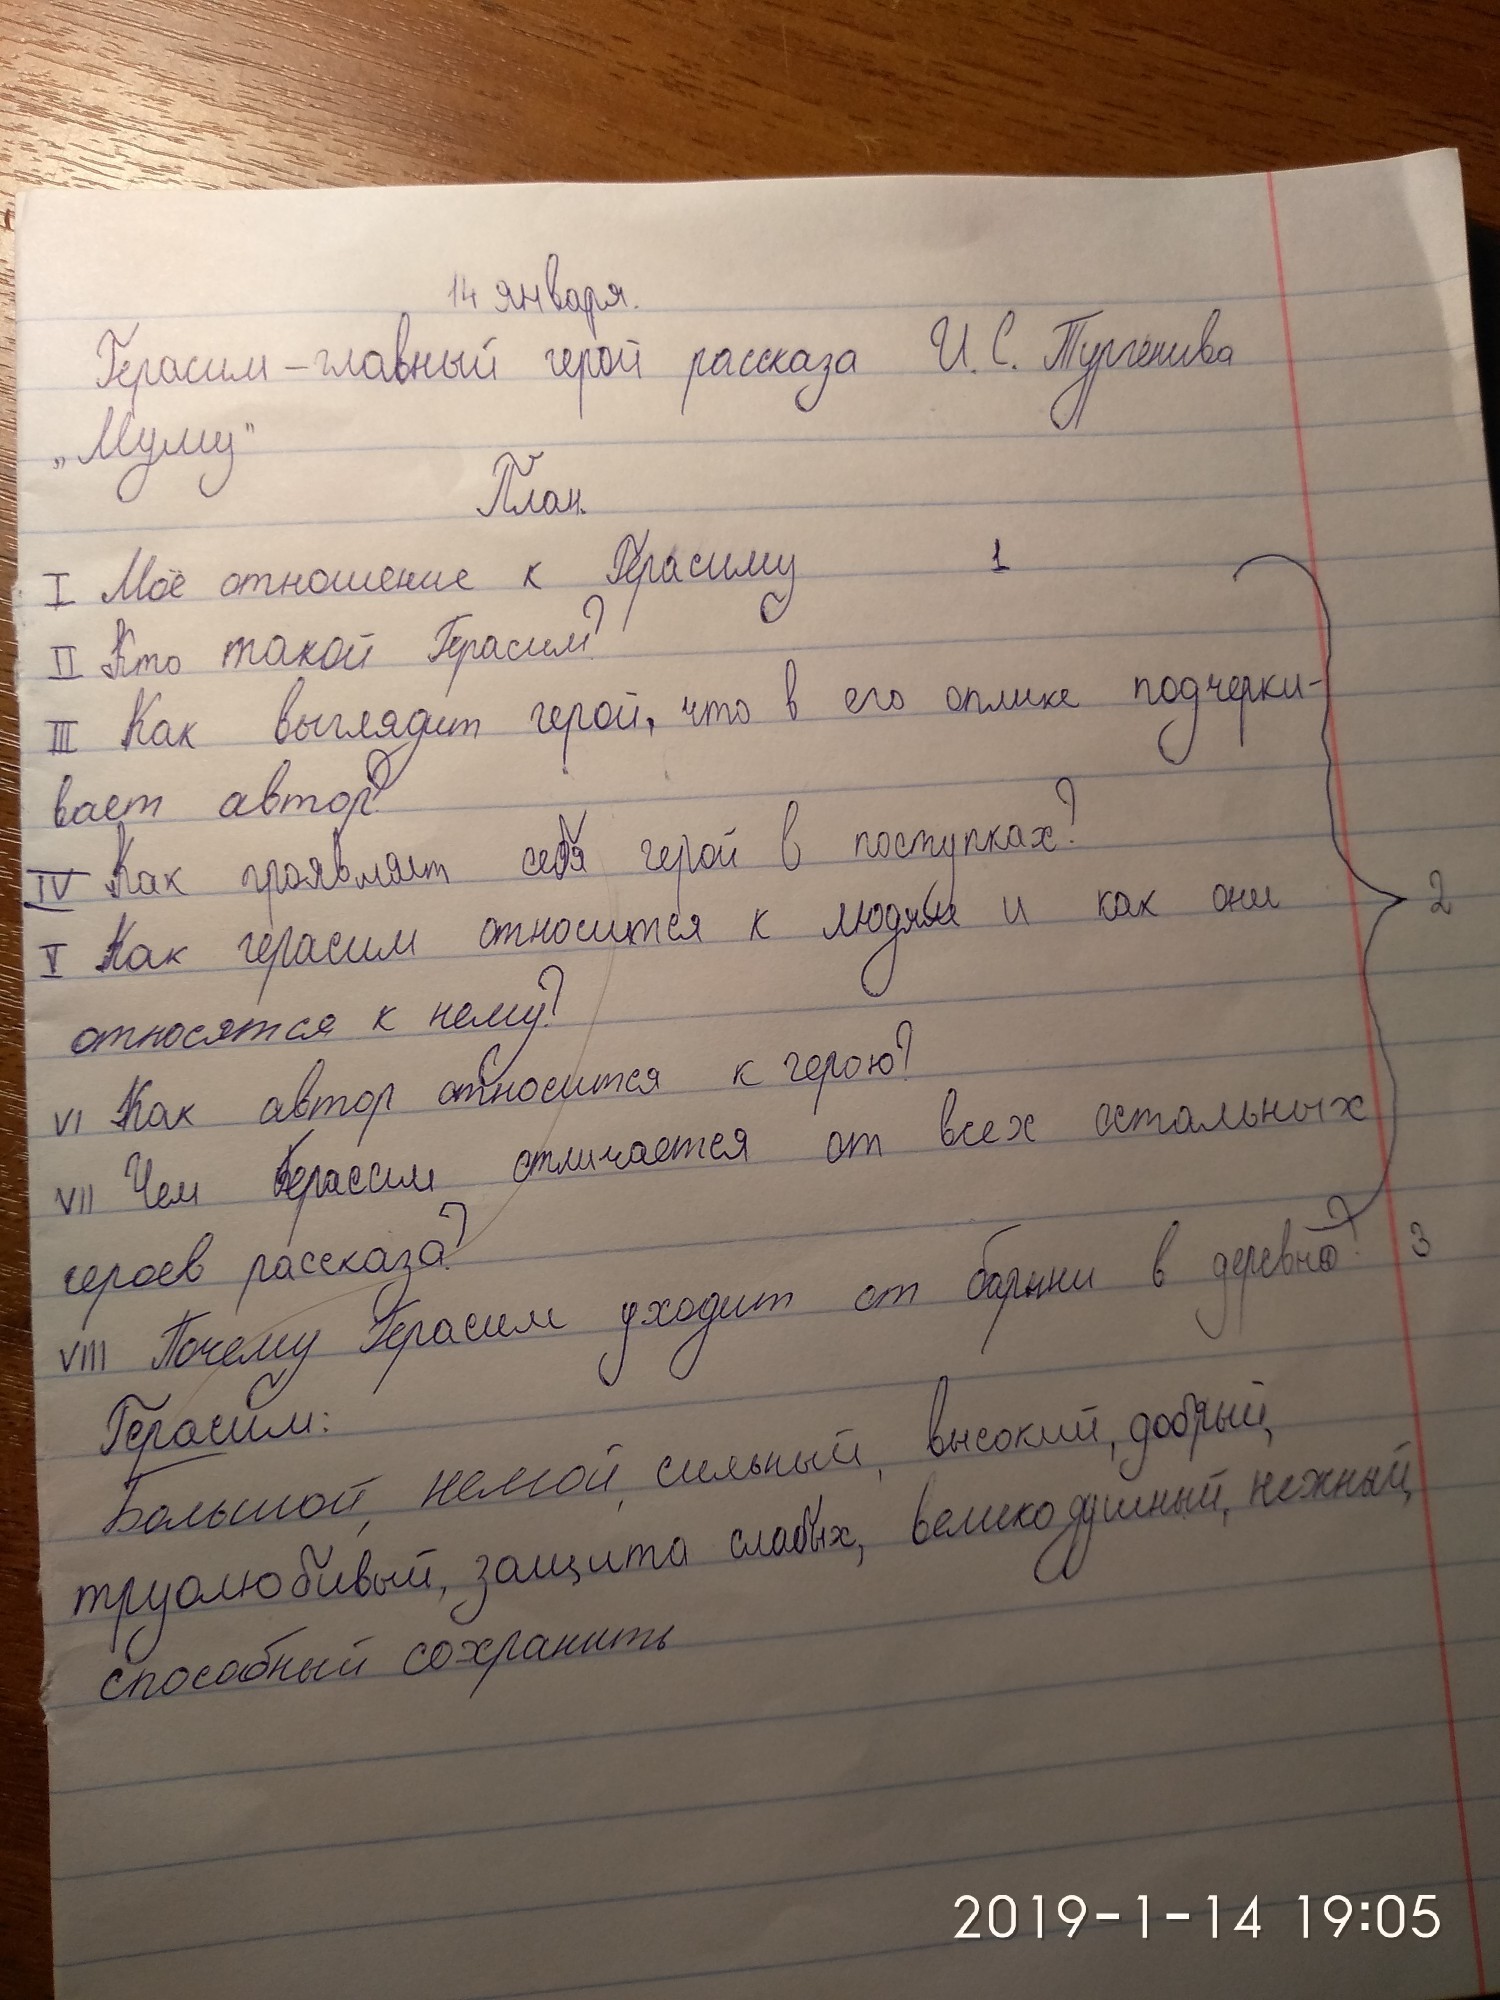 14 января.
Герасим – главный герой рассказа И. С. Тургенива
„Муму"
План.
I Моё отношение к Герасиму 1
II Кто такой Герасим?
III Как выглядит герой, что в его оплике подчерки-
вает автор?
IV Как проявляет себя герой в поступках?
V Как герасим относится к людям и как они 2
относятся к нему?
VI Как автор относится к герою?
VII Чем Герасим отличается от всех остальных
героев рассказа?
VIII Почему Герасим уходит от барыни в деревню? 3
Герасим:
Большой, немой, сильный, высокий, добрый,
труолюбивый, защита слабых, великодушный, нежный,
способный сохранить
2019-1-14 19:05